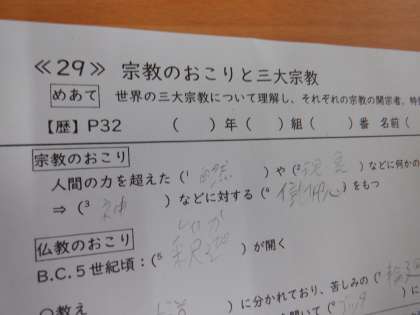 ≪29≫ 宗教のおこりと三大宗教
めあて 世界の三大宗教について理解し、それぞれの宗教の開宗者、特
【歴】P32 ( )年( )組( )番 名前(
宗教のおこり
人間の力を超えた(¹ 自然 )や(² 現象 )などに何かの
⇒(³ 神 )などに対する(⁴ 信仰心 )をもつ
仏教のおこり
しゃか
B.C.5世紀頃:(⁵ 釈迦 )が開く
○教え )に分かれており、苦しみの(⁷ 輪廻